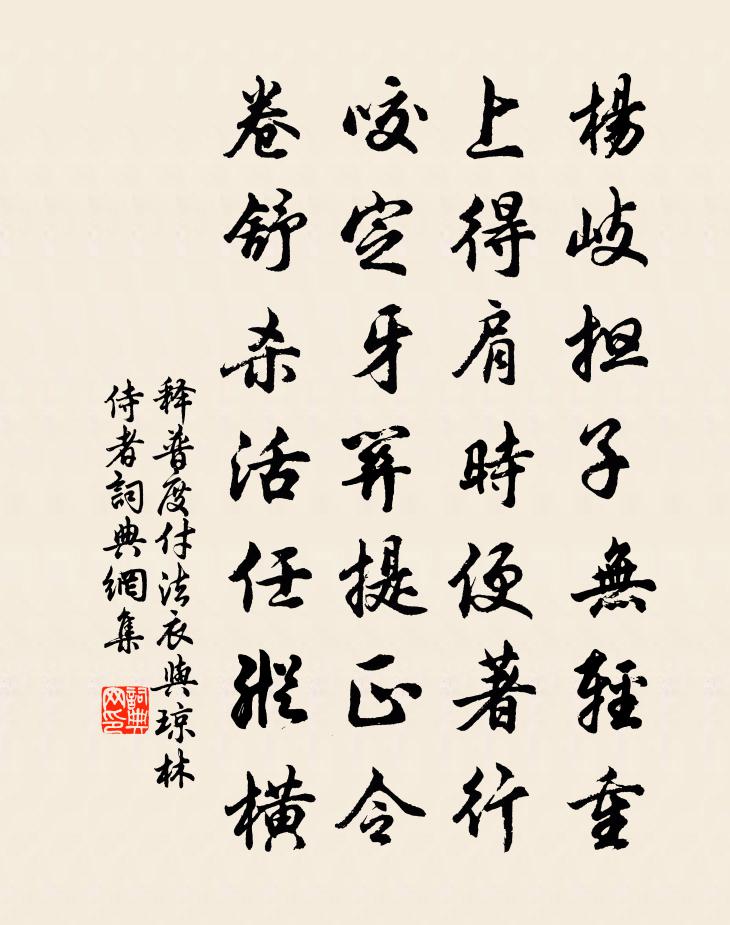 楊岐担子無輕重
上得肩時便著行
咬定牙關提正令
卷舒杀活任縱橫
释普度付法衣與琼林
侍者詞典網集
詞典
网印